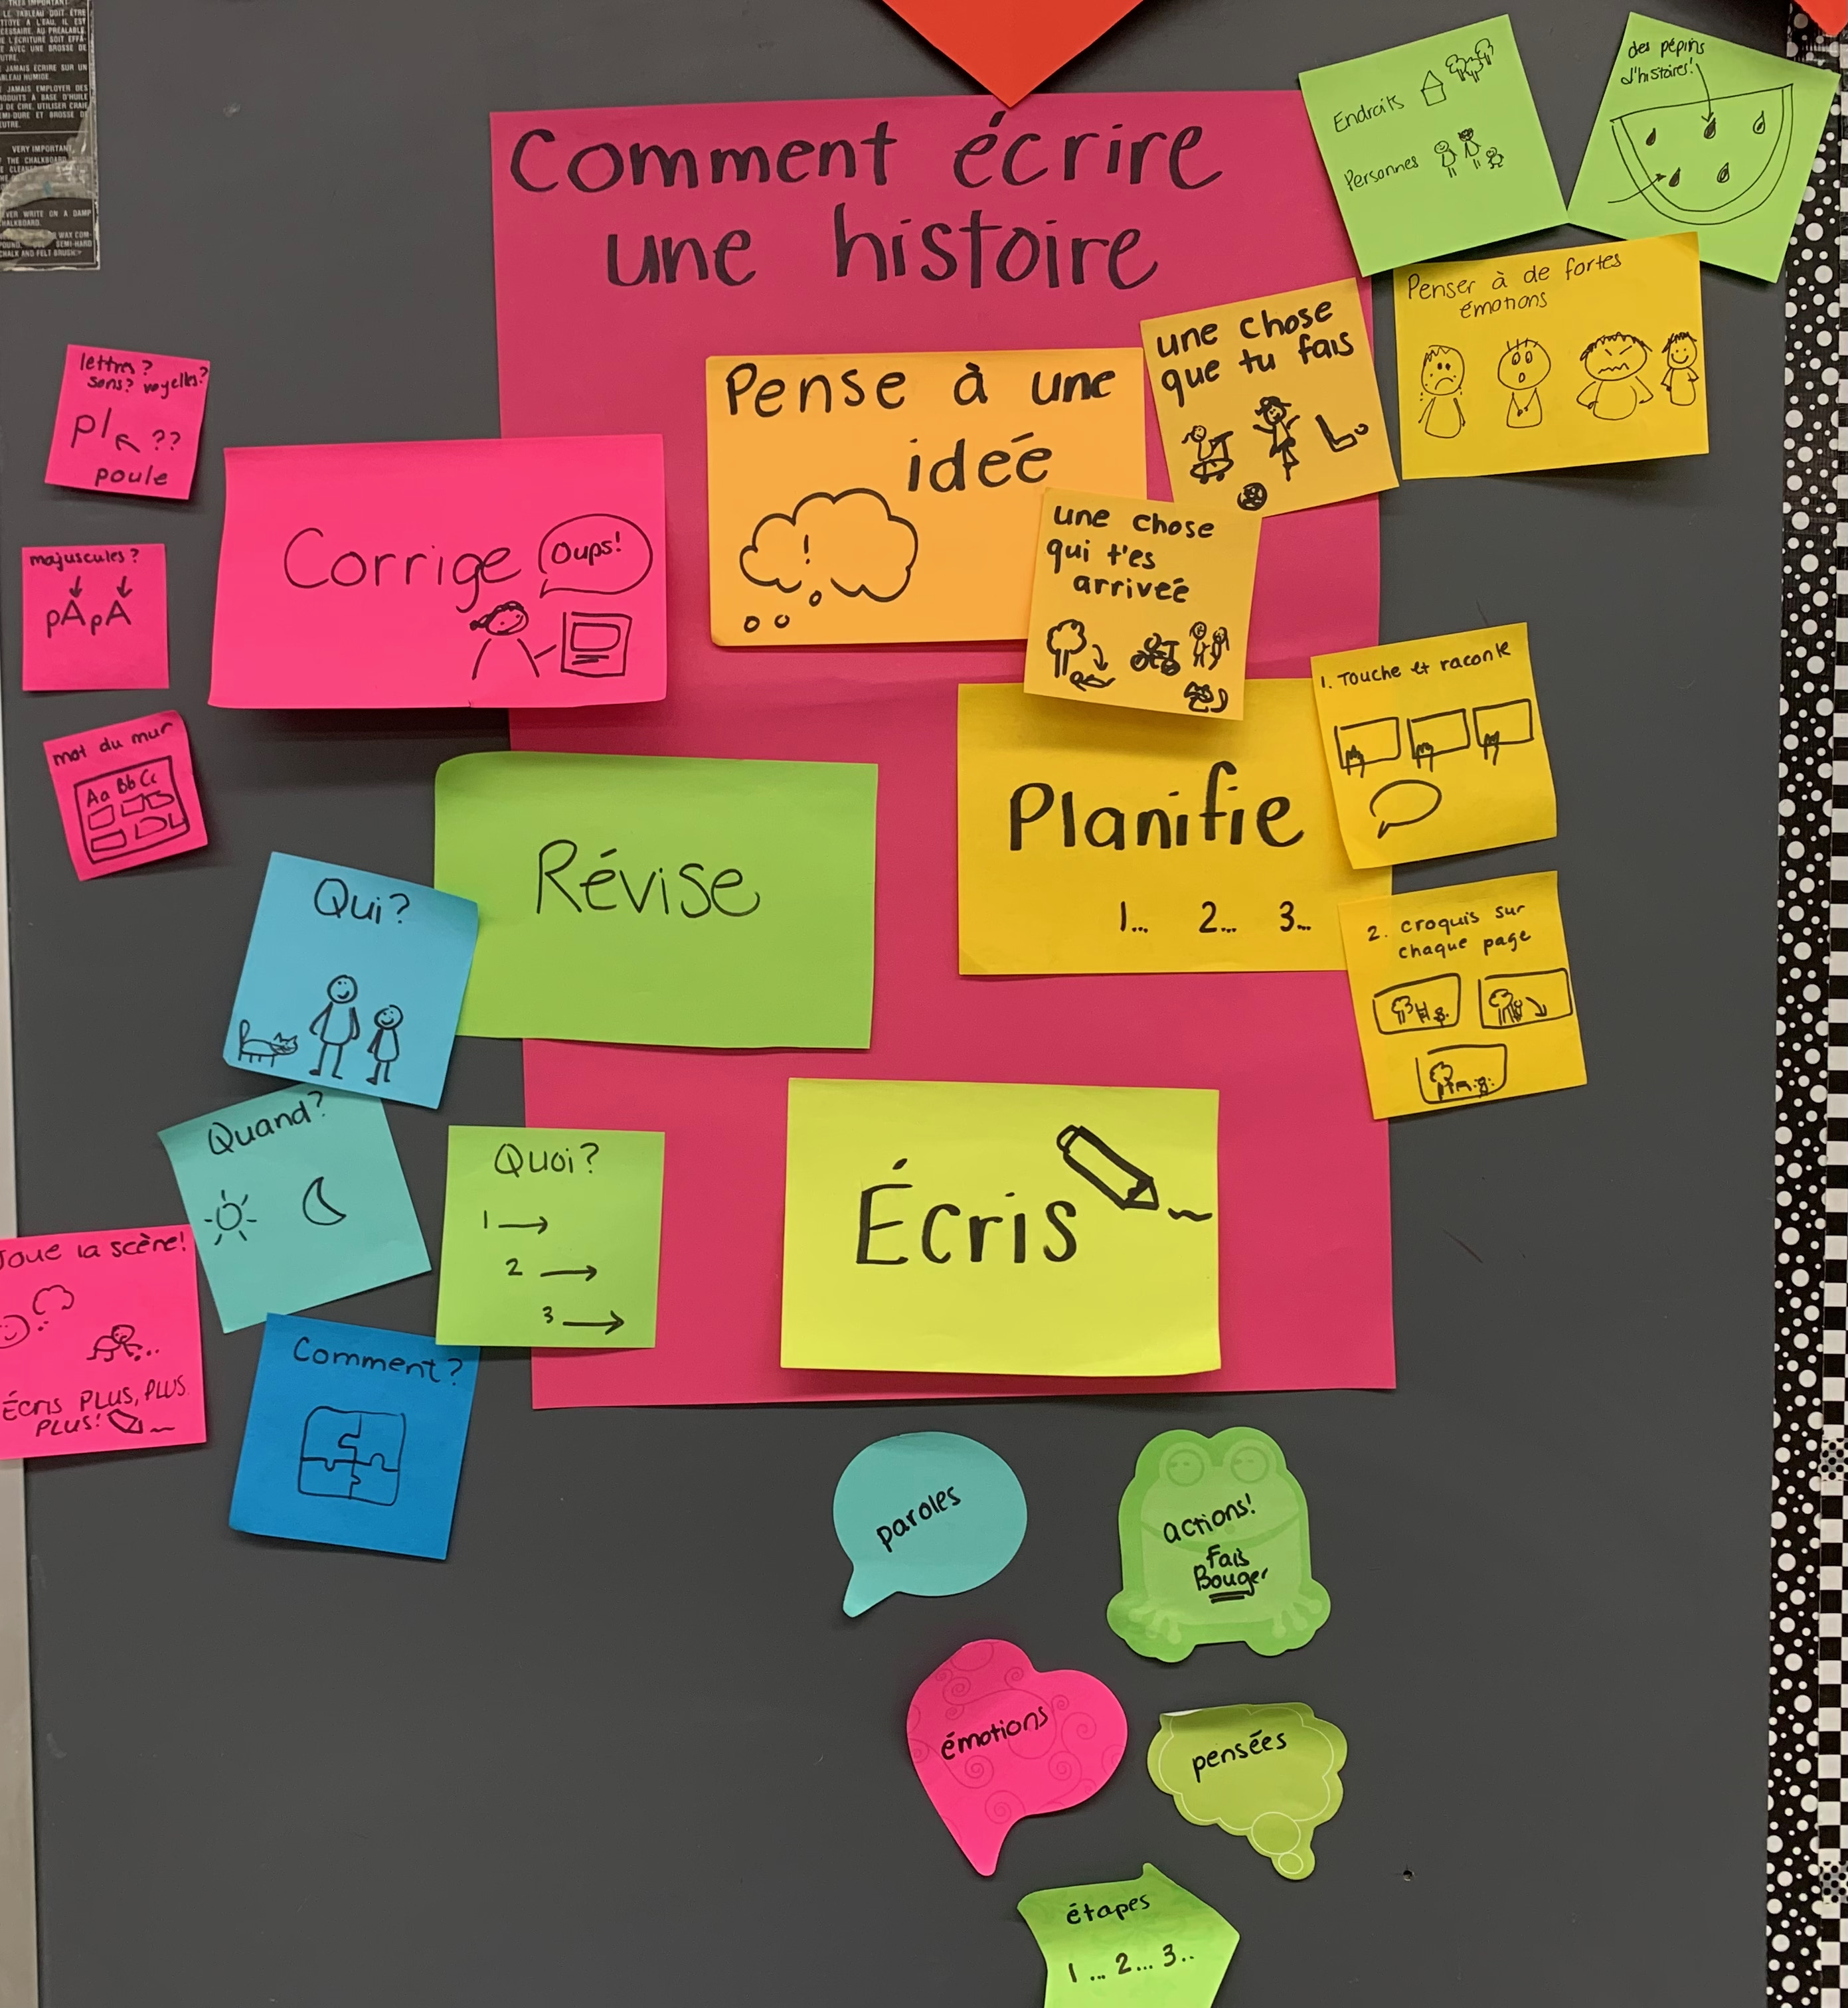 TRÈS IMPORTANT
LE TABLEAU DOIT ÊTRE
À L'EAU, IL EST
AU PRÉALABLE,
L'ÉCRITURE SOIT
AVEC UNE BROSSE DE
JAMAIS ÉCRIRE SUR UN
HUMIDE.
JAMAIS EMPLOYER DES
À BASE D'HUILE
DE CIRE, UTILISER CRAIE
ET BROSSE DE
VERY IMPORTANT
THE CHALKBOARD
WRITE ON A DAMP
WAX
SEMI-HARD
CHALK AND FELT BRUSH
Comment écrire
une histoire
Endroits
Personnes
des pépins
d'histoires!
Penser à de fortes
émotions
Pense à une
ideé
!
une chose
que tu fais
une chose
qui t'es
arriveé
Planifie
1... 2... 3...
1. Touche et raconte
2. croquis sur
chaque page
Écris
paroles
actions!
Fais
Bouger
émotions
pensées
étapes
1 ... 2... 3..
Révise
Qui?
Quand?
Quoi?
1
2
3
Comment?
Joue la scène!
Écris PLUS, PLUS
PLUS!
Corrige
Oups!
lettres?
sons? voyelles?
pl ??
poule
majuscules?
pApA
mot du mur
Aa Bb Cc